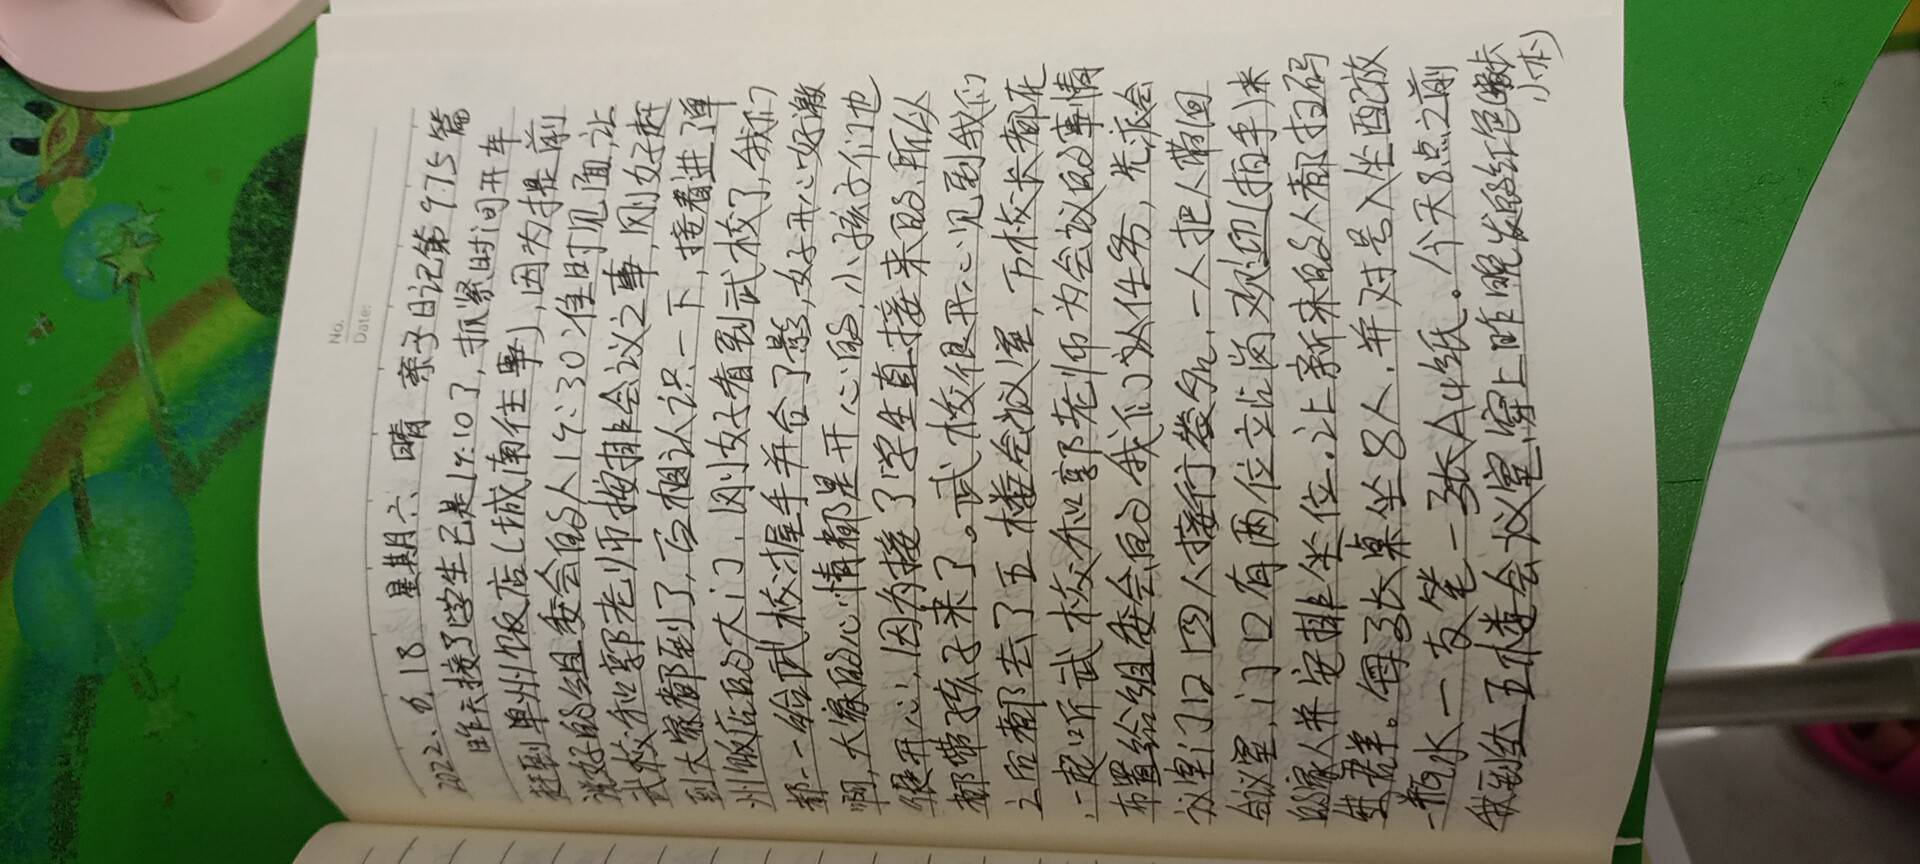 No.
Date:
2022.6.18 星期六 晴 亲子日记第975篇
昨天接了学生已是19:10了,抓紧时间开车
赶到单州饭店(城南住事),因为提前
说好的组委会的人19:30准时见面,让
武校和郭老师按排会议之事,刚好赶
到大家都到了,互相认识一下,接着进了单
州饭店的大门,刚好看到武校了,我们
都一一给武校握手并合了影,好开心好激
啊,大家的心情都是开心的,小孩子们也
很开心,因为接了学生直接来的,所以
都带孩子来了。武校很开心见到我们
之后都去了五楼会议室,万校长都在
一起听武校和郭老师为会议的事情
布置给组委会的我们以任务,先派会
议室门口四人接行卷外,一人把人带回
会议室,门口有两位立岗欢迎拍手来
的家人并安排坐位.让新来的人都扫码
进群。每张长桌坐8人,并对号入坐配放
一瓶水一支笔一张A4纸。今天8点之前
我到达五楼会议室,穿上昨晚发的红色瞰
小衣)